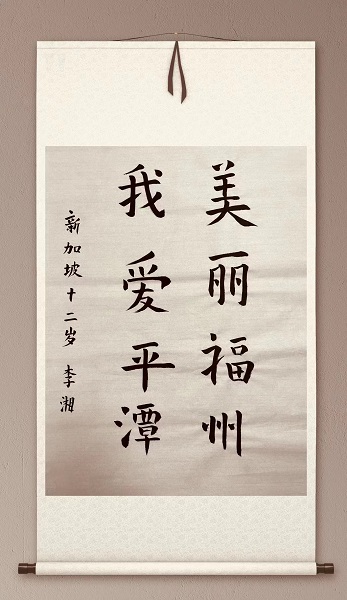 美丽福州
我爱平潭
新加坡十二岁 李湘